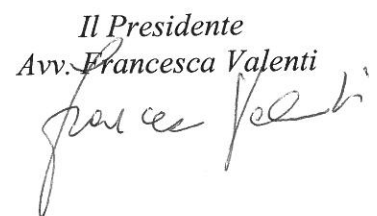 Il Presidente
Avv. Francesca Valenti
Francesca Valenti